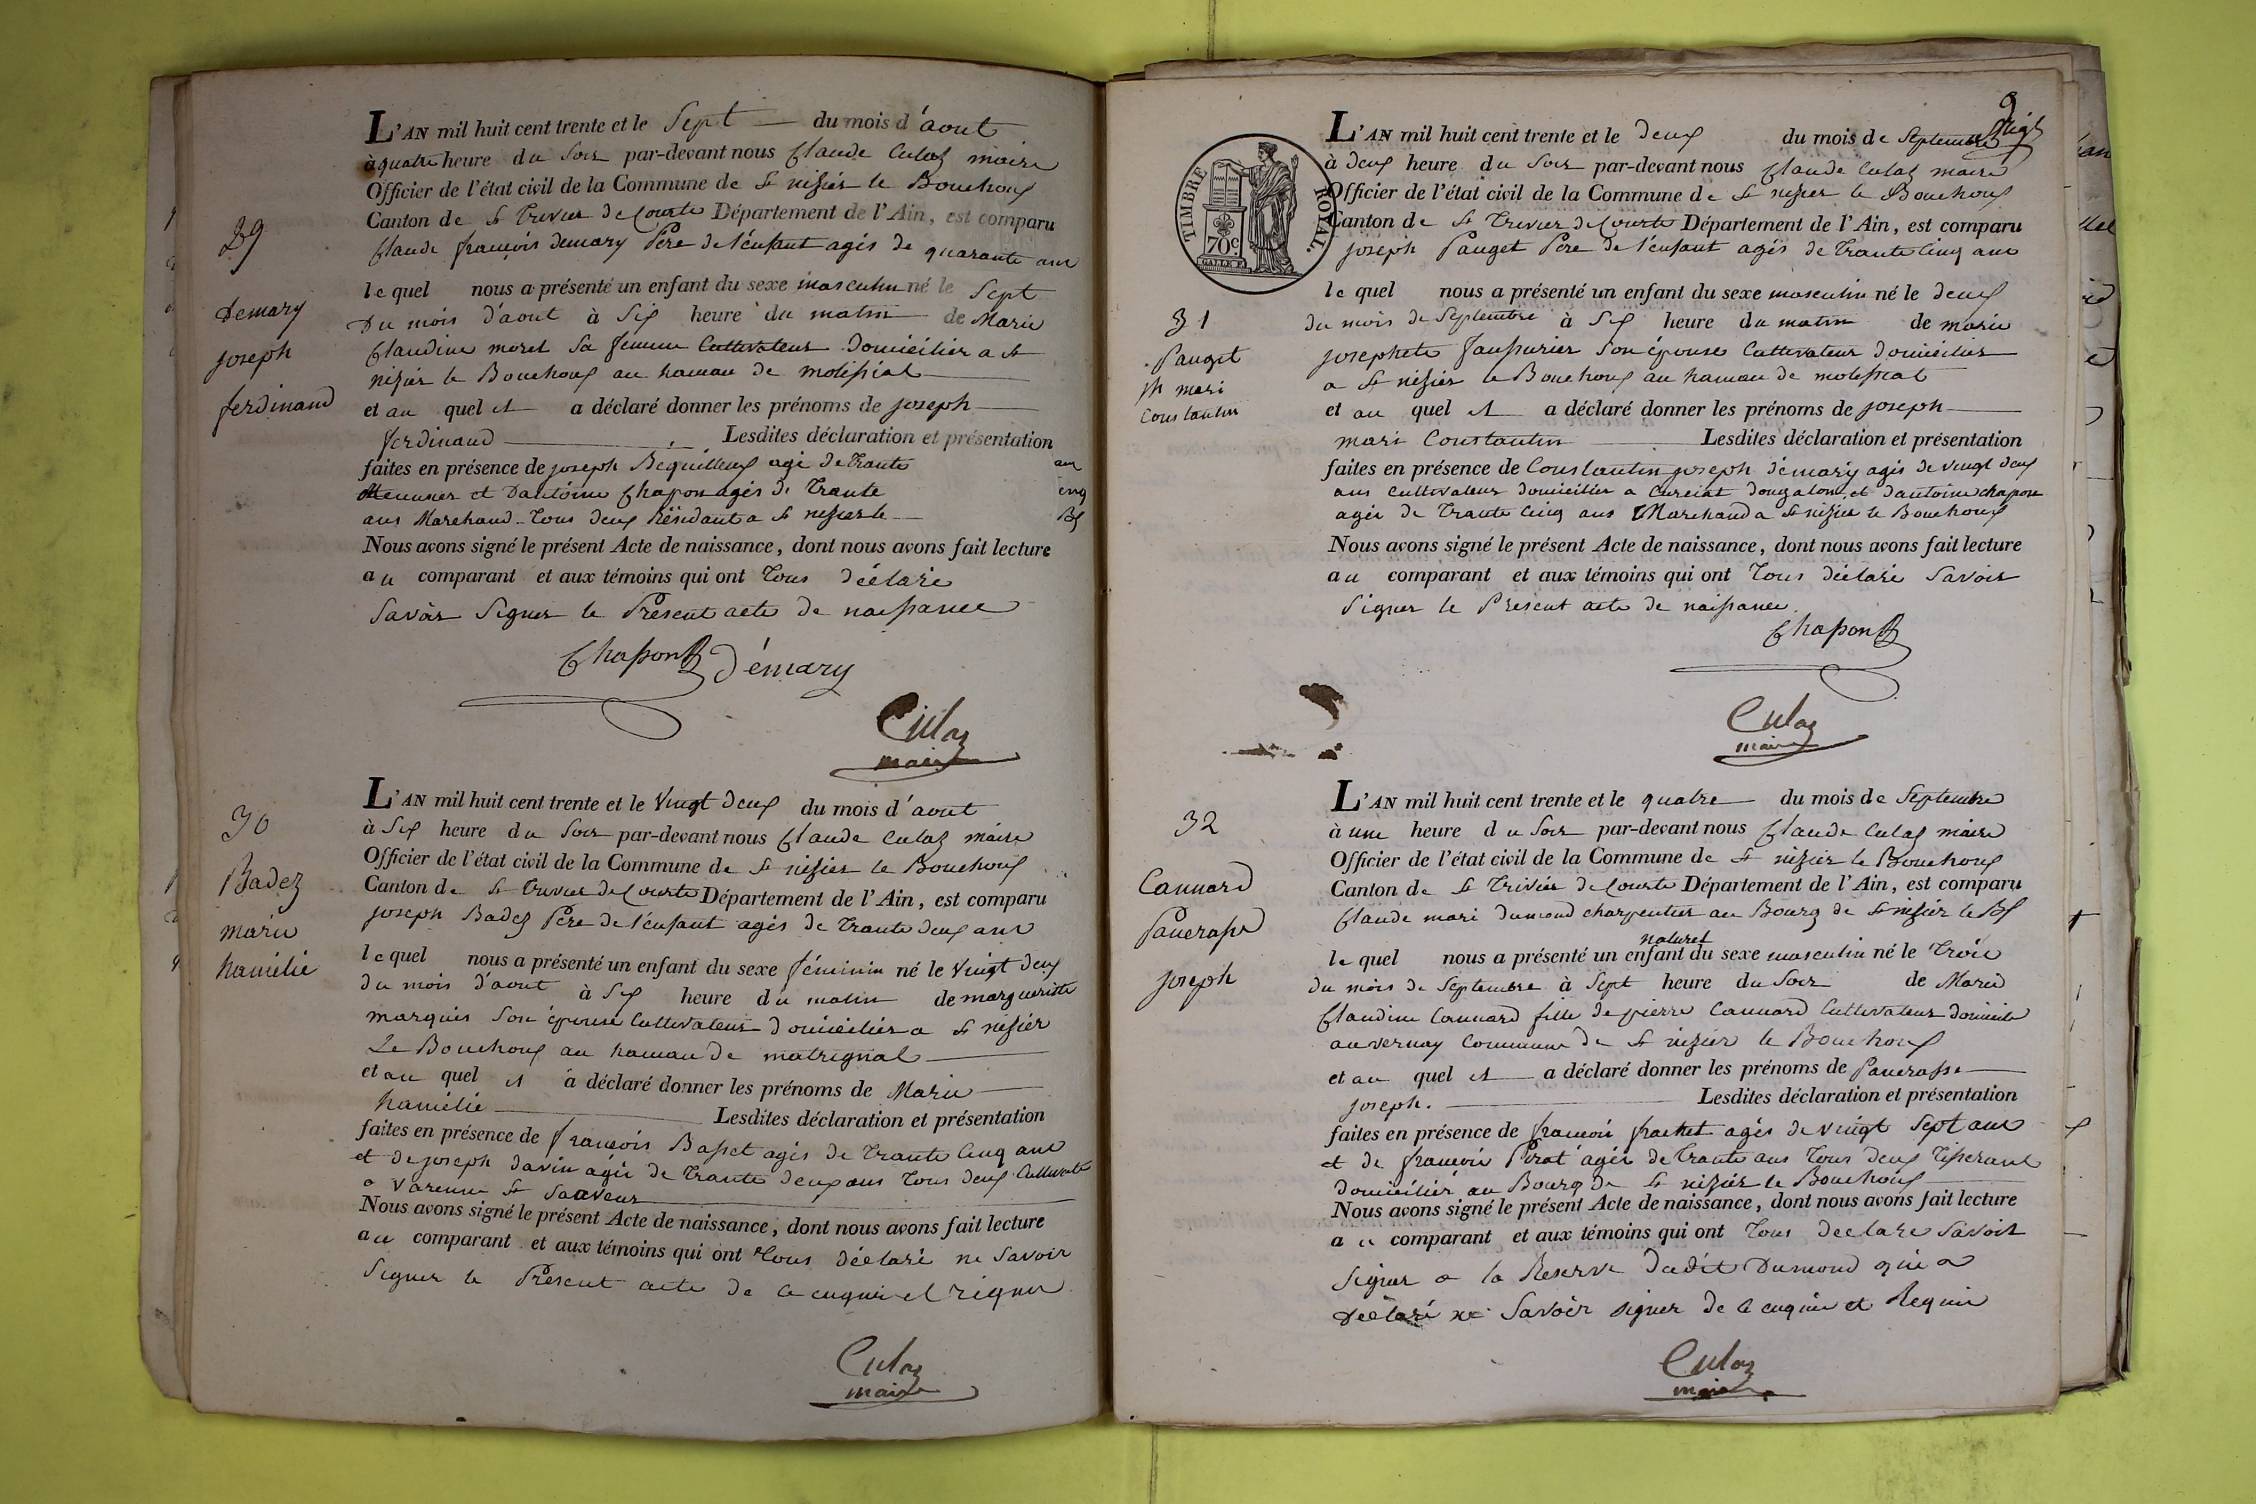 29
Demary
joseph
ferdinand
L'AN mil huit cent trente et le Sept du mois d'aout
à quatre heure du Soir par-devant nous Claude Culaz maire
Officier de l'état civil de la Commune de St nisiér le Bouchoux
Canton de St Trivier de Courte Département de l'Ain, est comparu
Claude françois demary Pére de l'enfant agés de quarante ans
le quel nous a présenté un enfant du sexe masculin né le Sept
Du mois d'aout à Six heure du matin de Marie
Claudine morel Sa femme Cultivateur Domicilier a St
nisiér le Bouchoux au hameau de molissiat
et au quel il a déclaré donner les prénoms de joseph
ferdinand Lesdites déclaration et présentation
faites en présence de joseph Bequilleux agé de Trante ans
et Dantoine Chapon agés de Trante cinq
ans Marchand Tous deux Résidant a St nisier le Bx
Nous avons signé le présent Acte de naissance, dont nous avons fait lecture
au comparant et aux témoins qui ont Tous déclaré
Savoir Signer le Présent acte de naissance
Chapon Démary
Culaz
maire
30
Badez
marie
hamélie
L'AN mil huit cent trente et le Vingt deux du mois d'aout
à Six heure du Soir par-devant nous Claude Culaz maire
Officier de l'état civil de la Commune de St nisiér le Bouchoux
Canton de St Trivier de Courte Département de l'Ain, est comparu
joseph Badez Pére de l'enfant agés de Trante deux ans
le quel nous a présenté un enfant du sexe féminin né le Vingt deux
du mois d'aout à Six heure du matin de margueritte
marquis Son épouse Cultivateur domicilier a St nisiér
Le Bouchoux au hameau de matrignat
et au quel il a déclaré donner les prénoms de Marie
hamélie Lesdites déclaration et présentation
faites en présence de françois Basset agés de Trante Cinq ans
et de joseph davin agés de Trante deux ans Tous deux Cultivateur
a Varenne St Sauveur
Nous avons signé le présent Acte de naissance, dont nous avons fait lecture
au comparant et aux témoins qui ont Tous déclaré ne Savoir
Signer le Présent acte de ce enquis et réquis
Culaz
maire
9
TIMBRE ROYAL.
70c.
31
Pauget
jh mari
Constantin
L'AN mil huit cent trente et le deux du mois de Septembre
à deux heure du Soir par-devant nous Claude Culaz maire
Officier de l'état civil de la Commune de St nisier le Bouchoux
Canton de St Trivier de Courte Département de l'Ain, est comparu
joseph Pauget Pére de l'enfant agés de Trante Cinq ans
le quel nous a présenté un enfant du sexe masculin né le deux
du mois de Septembre à Six heure du matin de marie
josephete faussurier Son épouse Cultivateur domicilier
a St nisier le Bouchoux au hameau de molissiat
et au quel il a déclaré donner les prénoms de joseph
mari Constantin Lesdites déclaration et présentation
faites en présence de Constantin joseph démary agés de vingt deux
ans Cultivateur domicilier a Curciat dongalon, et dantoine chapon
agés de Trante Cinq ans Marchand a St nisier le Bouchoux
Nous avons signé le présent Acte de naissance, dont nous avons fait lecture
au comparant et aux témoins qui ont Tous déclaré Savoir
Signer le Present acte de naissance
Chapon
Culaz
maire
32
Cannard
Pancrasse
joseph
L'AN mil huit cent trente et le quatre du mois de Septembre
à une heure du Soir par-devant nous Claude Culaz maire
Officier de l'état civil de la Commune de St nisiér le Bouchoux
Canton de St Triviér de Courte Département de l'Ain, est comparu
Claude mari dumond charpentier au Bourg de St nisier le Bx
le quel nous a présenté un enfant naturel du sexe masculin né le Trois
du mois de Septembre à Sept heure du Soir de Marie
Claudine Cannard fille de pierre Cannard Cultivateur domicilé
au vernay Commune de St nisier le Bouchoux
et au quel il a déclaré donner les prénoms de Pancrasse
joseph. Lesdites déclaration et présentation
faites en présence de françois frachet agés de vingt Sept ans
et de françois Pirat agés de Trante ans Tous deux Tisserant
domicilier au Bourg de St nisiér le Bouchoux
Nous avons signé le présent Acte de naissance, dont nous avons fait lecture
au comparant et aux témoins qui ont Tous déclaré Savoir
Signer a la Reserve dudit Dumond qui a
Déclaré ne Savoir signer de ce enquis et Requis
Culaz
maire